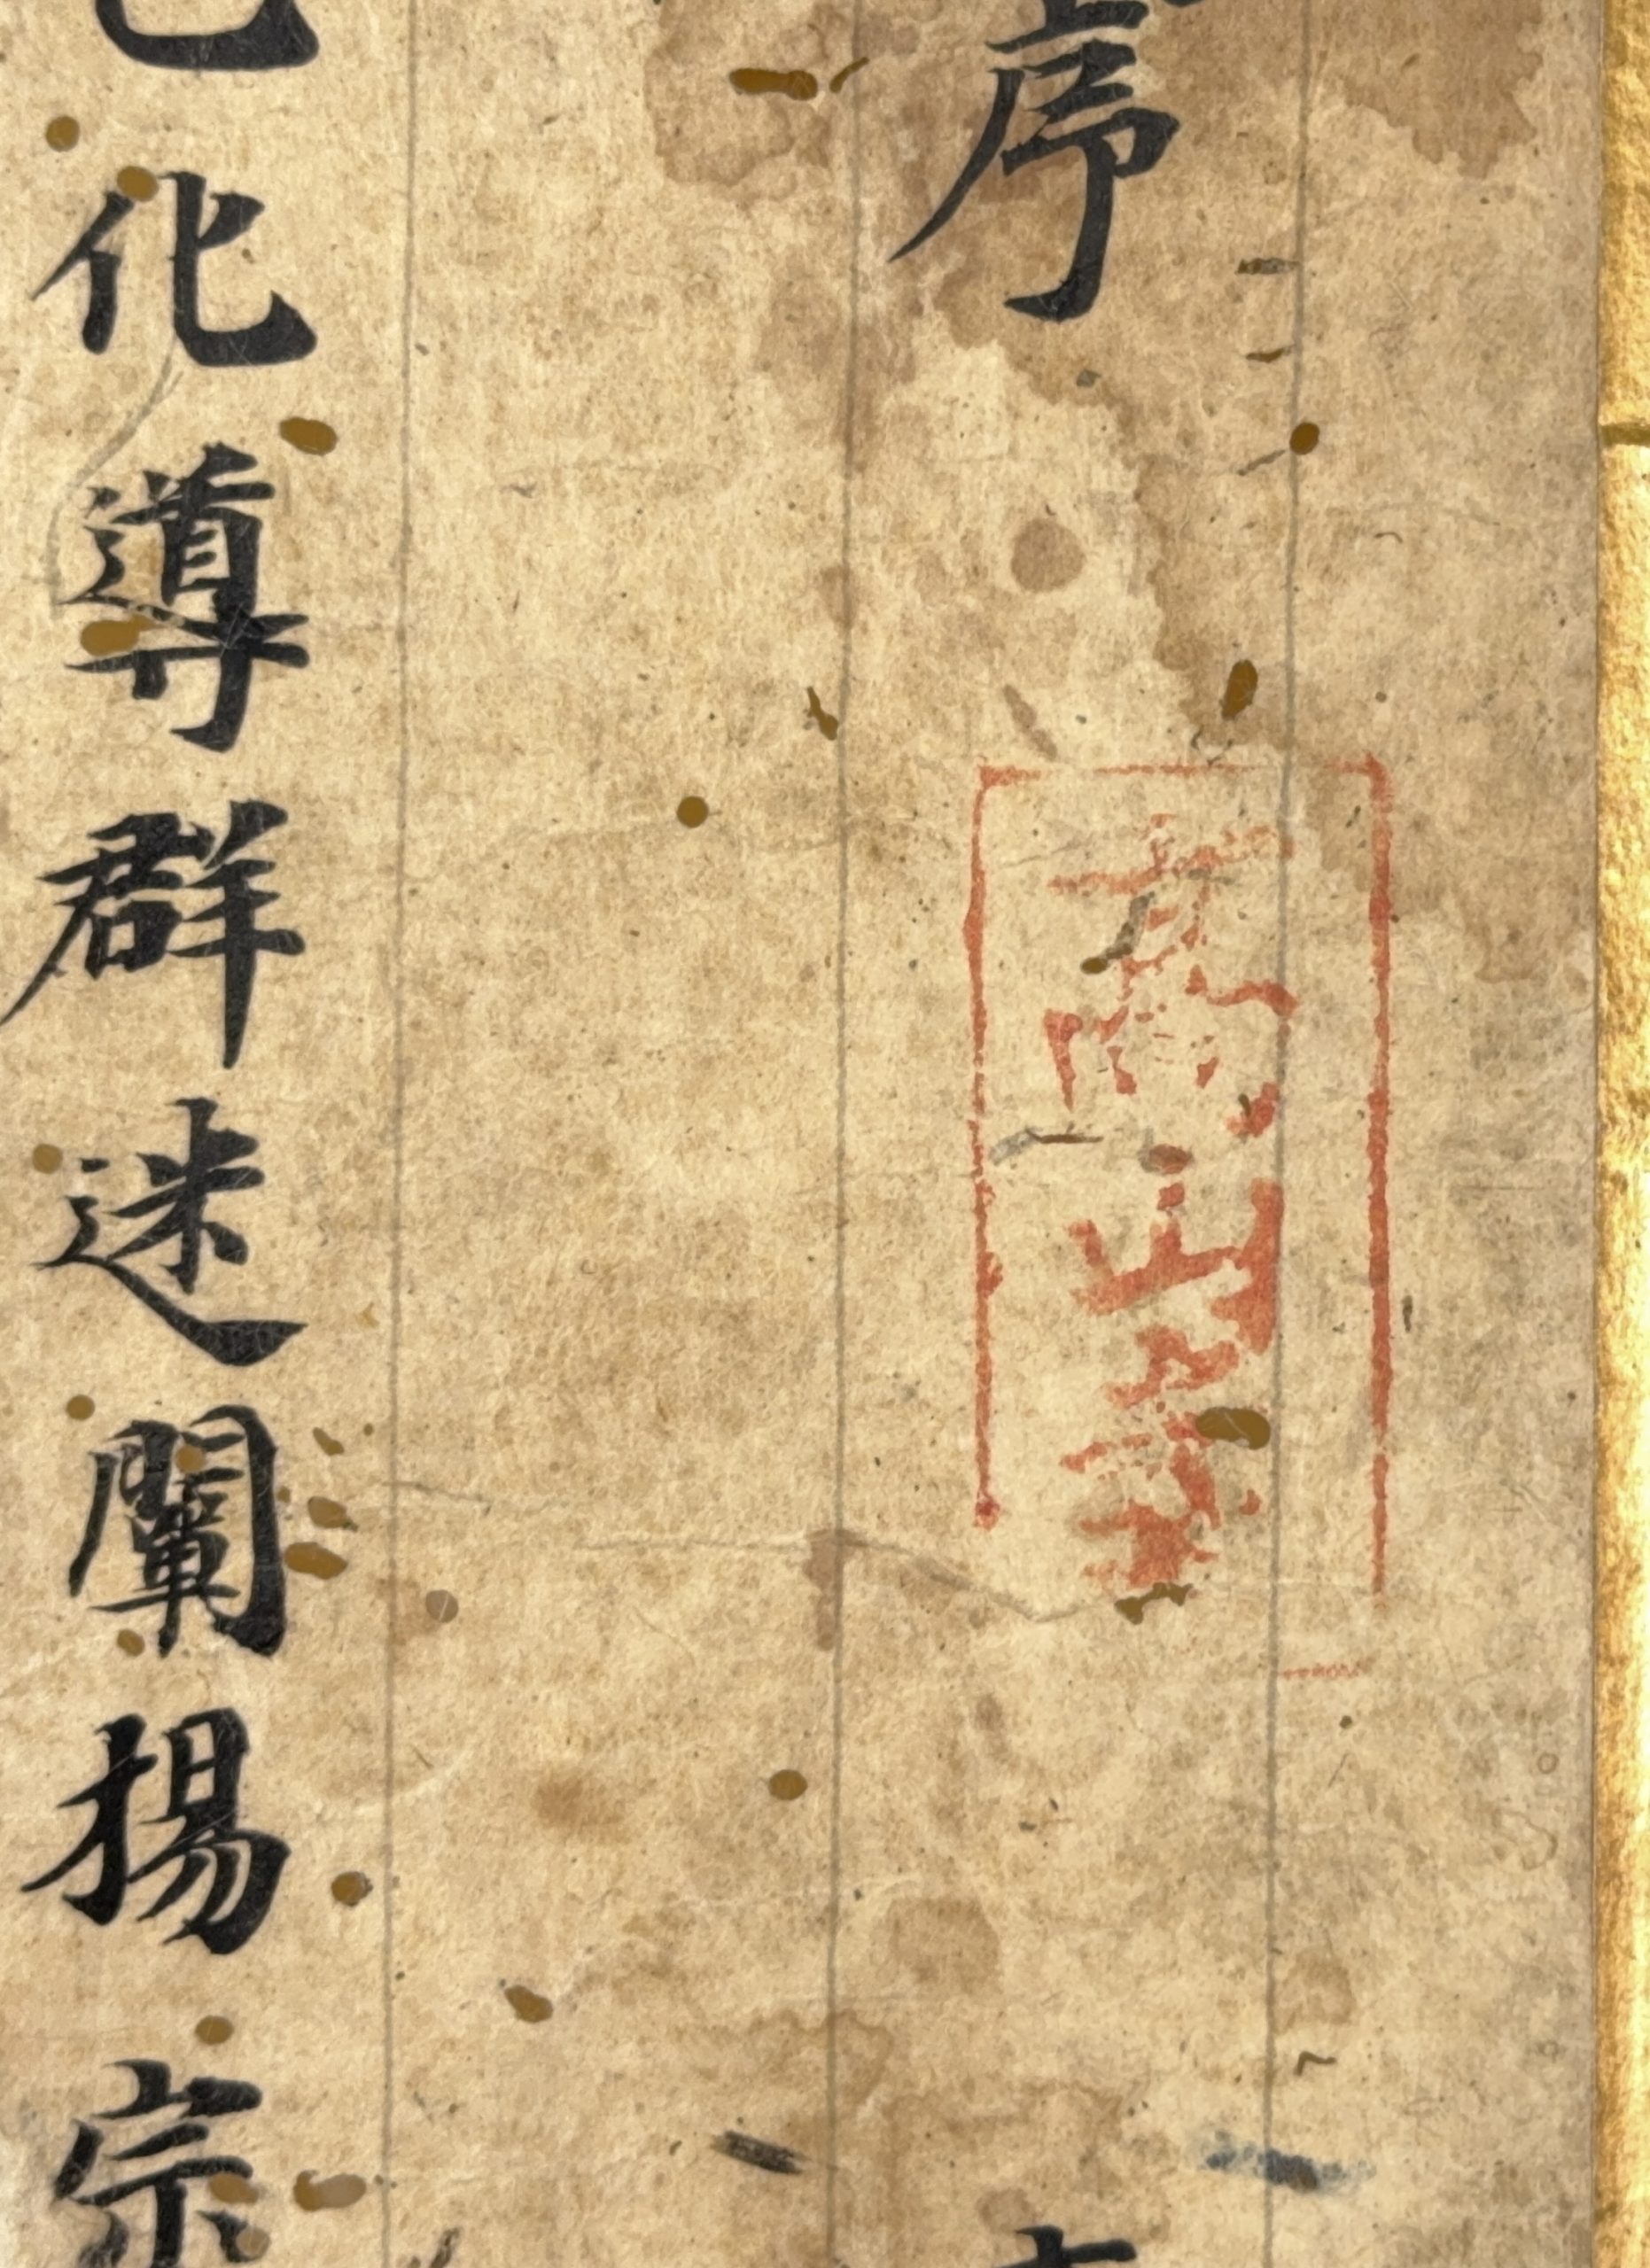 序
化導群迷闡揚宗